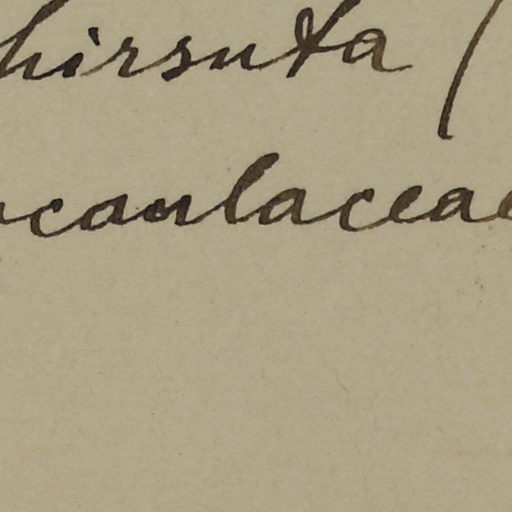 hirsuta (
caulaceae